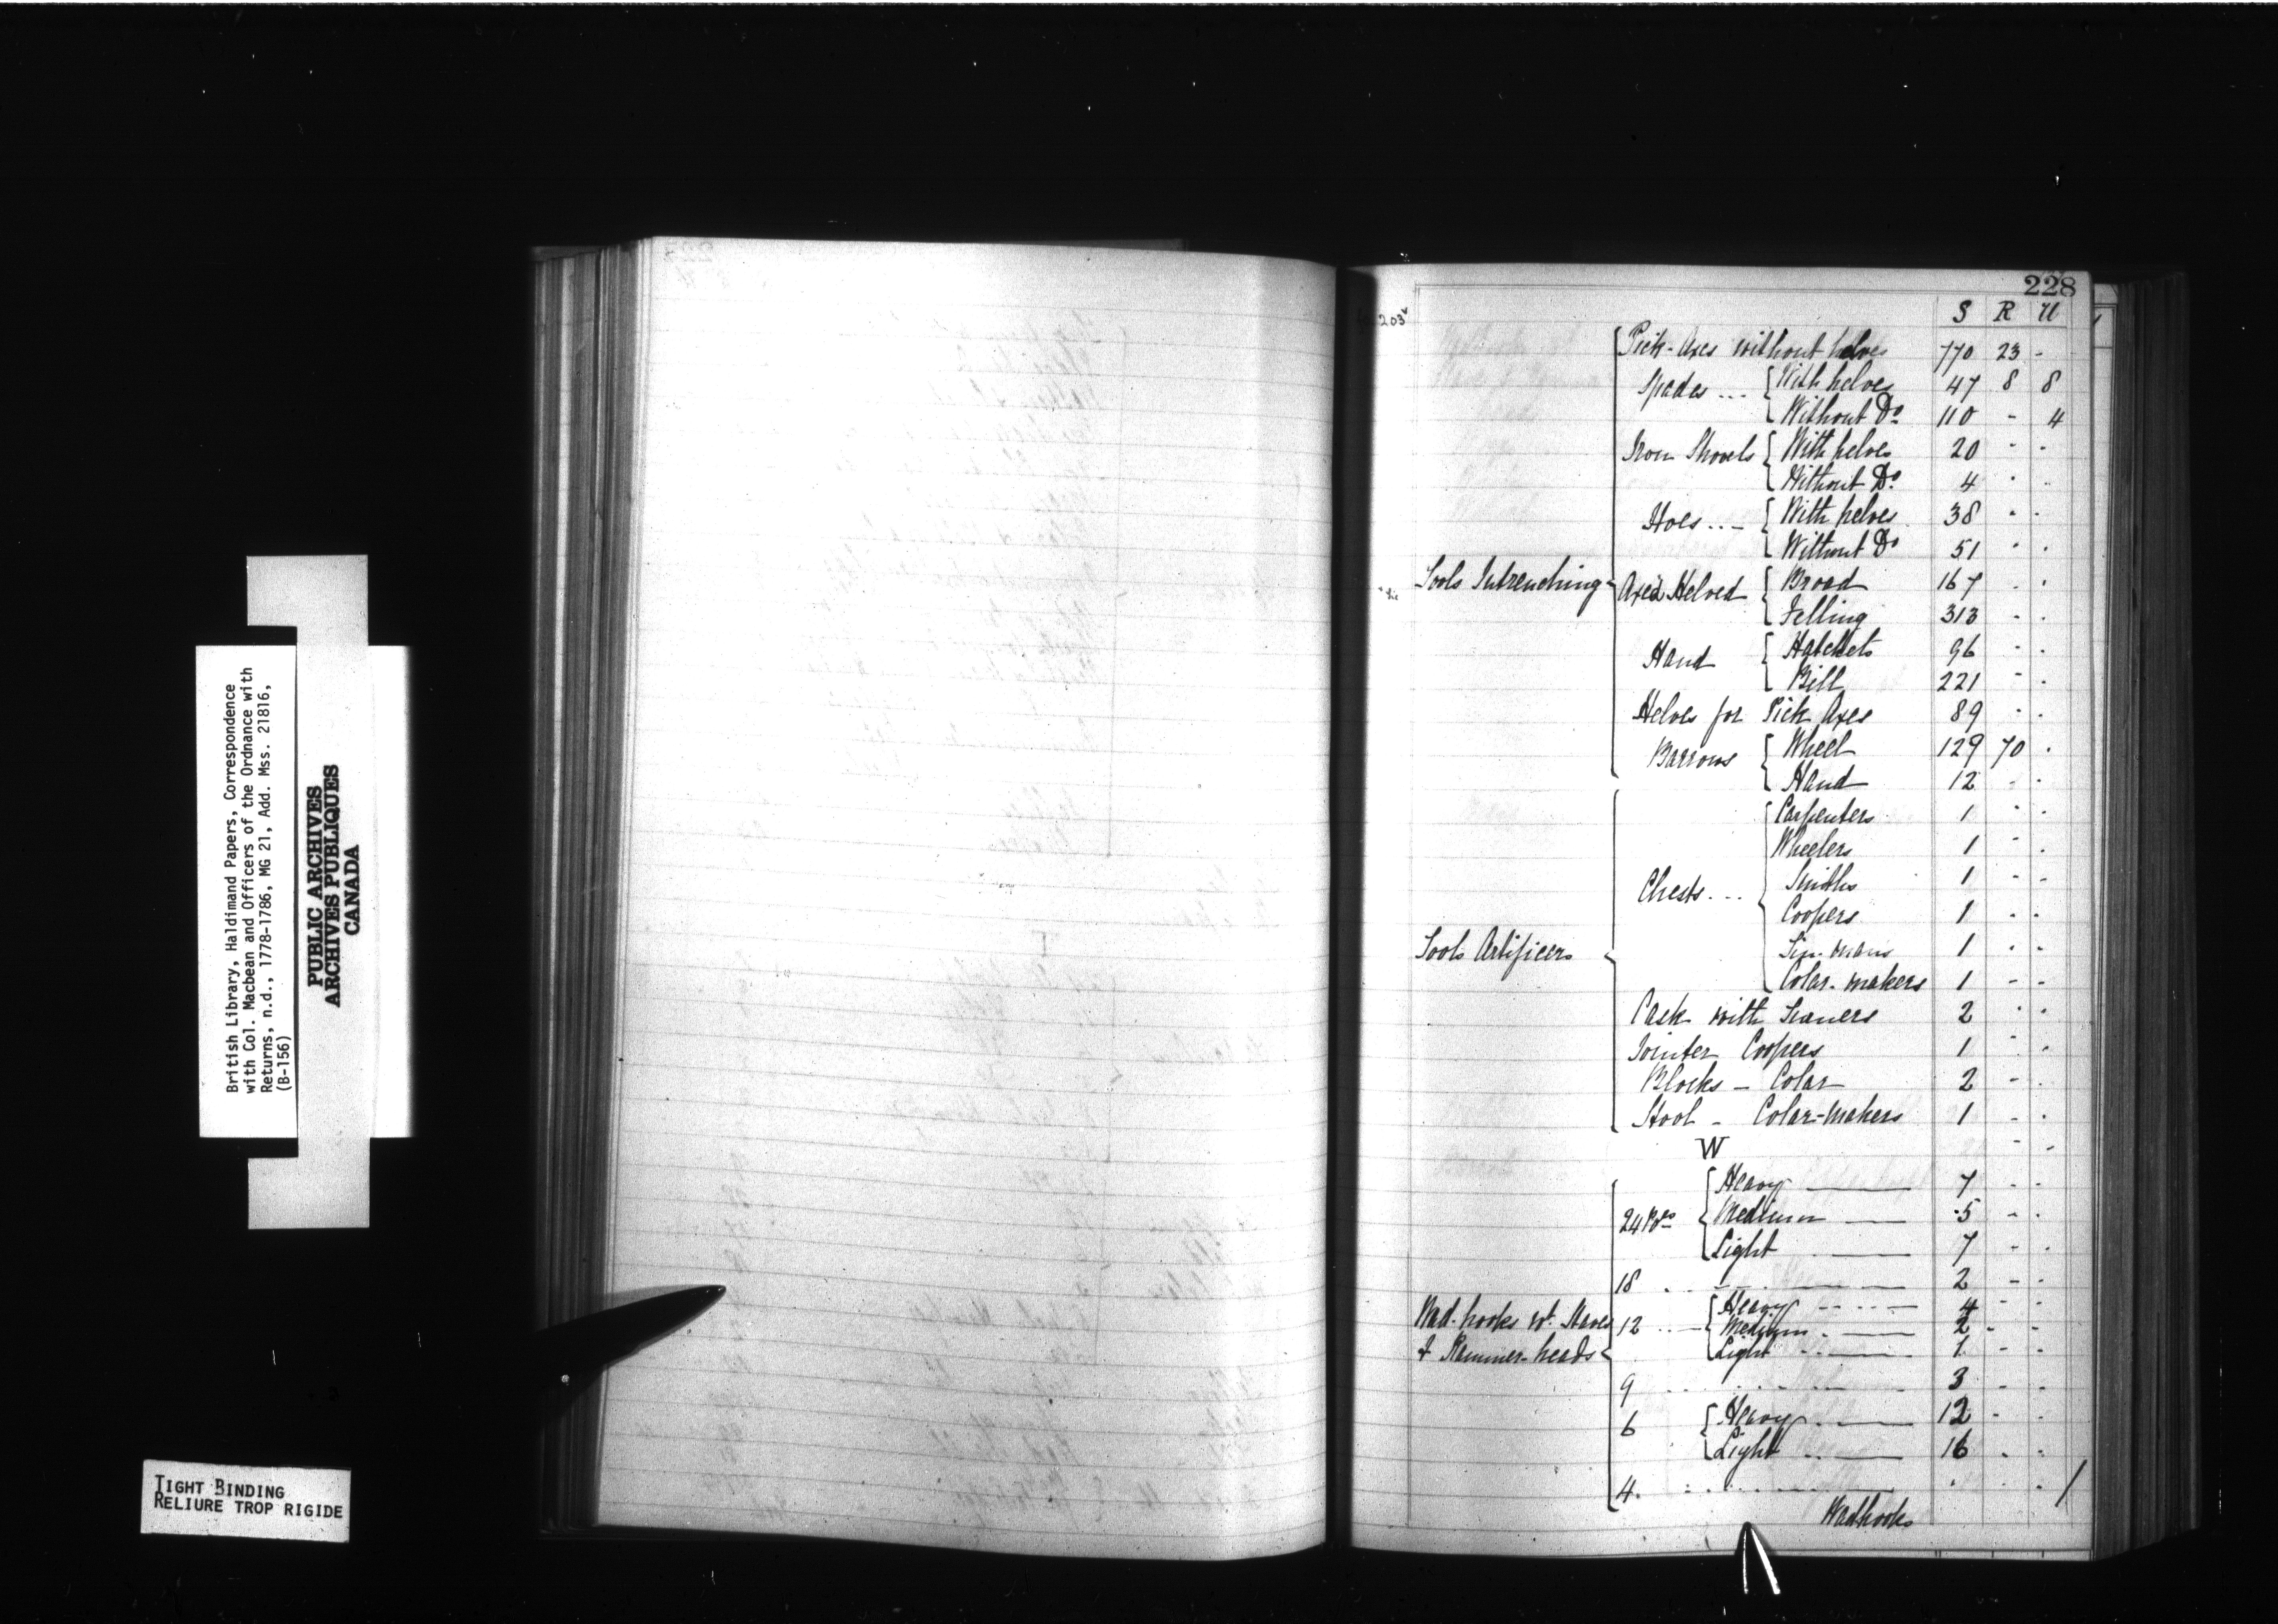 British Library, Haldimand Papers, Correspondence
with Col. Macbean and Officers of the Ordnance with
Returns, n.d., 1778-1786, MG 21, Add. Mss. 21816,
(B-156)
PUBLIC ARCHIVES
ARCHIVES PUBLIQUES
CANADA
TIGHT BINDING
RELIURE TROP RIGIDE
228
203v
S R U
Pick-Axes without helves 770 23 -
Spades ... With helves 47 8 8
Without Do 110 - 4
Iron Shovels With helves 20 - -
Without Do 4 - -
Hoes ... With helves 38 - -
Without Do 51 - -
Tools Intrenching Axes Helved Broad 167 - -
Felling 313 - -
Hand Hatchets 96 - -
Bill 221 - -
Helves for Pick Axes 89 - -
Barrows Wheel 129 70 -
Hand 12 - -
Carpenters 1 - -
Wheelers 1 - -
Chests ... Smiths 1 - -
Coopers 1 - -
Tools Artificers Tin-mans 1 - -
Colar-makers 1 - -
Cask with 2 - -
Jointer Coopers 1 - -
Blocks - Colar 2 - -
Stool - Colar-makers 1 - -
W
Heavy 7 - -
24 Prs Medium 5 - -
Light 7 - -
18 2 - -
Heavy 4 - -
Wad-hooks wt. Staves 12 Medium 2 - -
& Rammer-heads Light 1 - -
9 3 - -
6 Heavy 12 - -
Light 16 - -
4 - - - /
Wadhooks